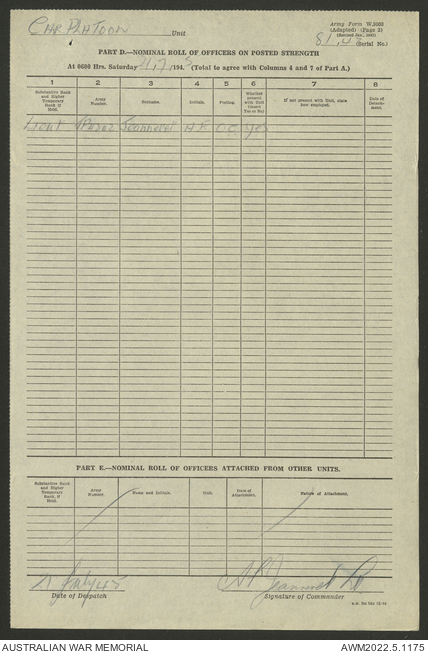 CAR PLATOON Unit
Army Form W.3008
(Adapted) (Page 2)
81/43 (Serial No.)
PART D.—NOMINAL ROLL OF OFFICERS ON POSTED STRENGTH
At 0600 Hrs. Saturday 21/7/1945 (Total to agree with Columns 4 and 7 of Part A.)
1 2 3 4 5 6 7 8
Substantive Rank and Higher Temporary Rank if Held. Army Number. Surname. Initials. Posting. Whether present with Unit (insert Yes or No) If not present with Unit, state how employed. Date of Detachment.
Lieut Jeanneret A.F. O.C. Yes
PART E.—NOMINAL ROLL OF OFFICERS ATTACHED FROM OTHER UNITS.
Substantive Rank and Higher Temporary Rank if Held. Army Number. Name and Initials. Unit. Date of Attachment. Nature of Attachment.
July 45
Date of Despatch
Signature of Commander
AUSTRALIAN WAR MEMORIAL
AWM2022.5.1175